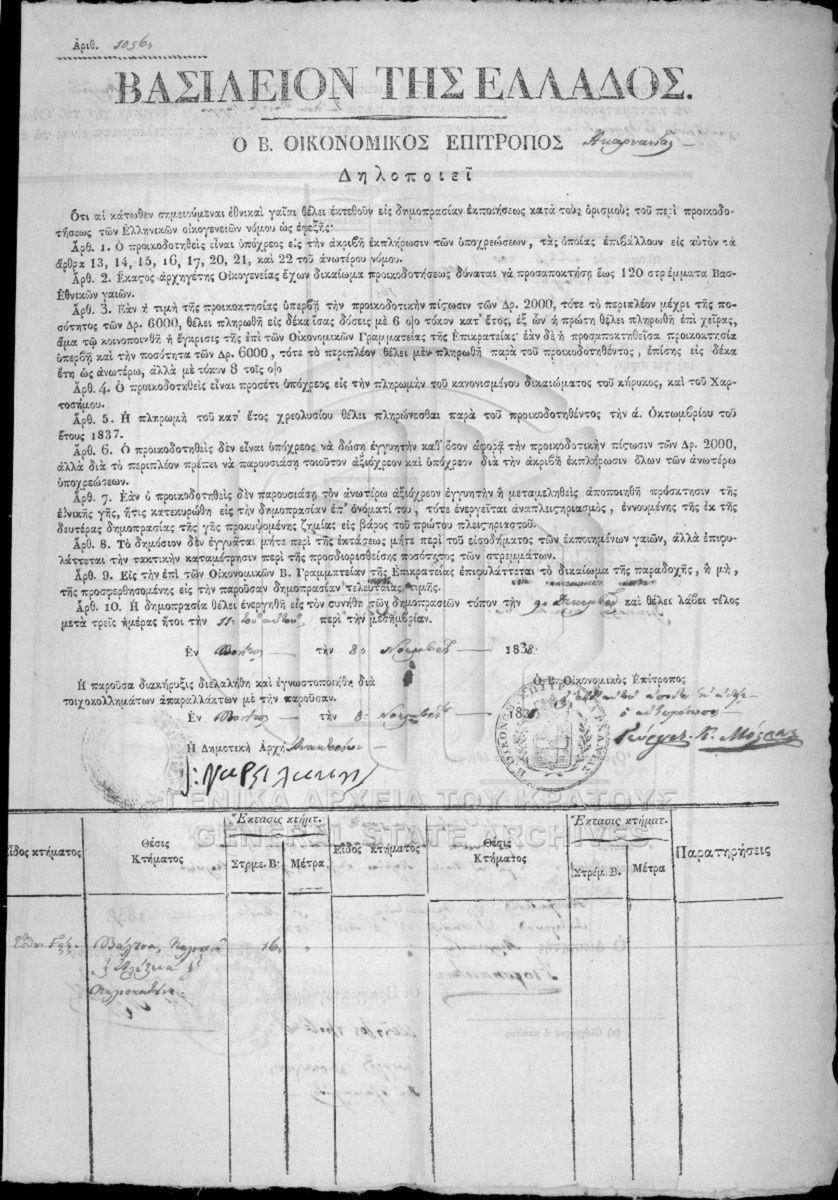 Ἀριθ. 1056.
ΒΑΣΙΛΕΙΟΝ ΤΗΣ ΕΛΛΑΔΟΣ.
Ο Β. ΟΙΚΟΝΟΜΙΚΟΣ ΕΠΙΤΡΟΠΟΣ Ἀκαρνανίας
Δηλοποιεῖ
Ὅτι αἱ κάτωθεν σημειούμεναι ἐθνικαὶ γαῖαι θέλει ἐκτεθοῦν εἰς δημοπρασίαν ἐκποιήσεως κατὰ τοὺς ὁρισμοὺς τοῦ περὶ προικοδο-
τήσεως τῶν Ἑλληνικῶν οἰκογενειῶν νόμου ὡς ἐφεξῆς·
Ἀρθ. 1. Ὁ προικοδοτηθεὶς εἶναι ὑπόχρεος εἰς τὴν ἀκριβῆ ἐκπλήρωσιν τῶν ὑποχρεώσεων, τὰς ὁποίας ἐπιβάλλουν εἰς αὐτὸν τὰ
ἄρθρα 13, 14, 15, 16, 17, 20, 21, καὶ 22 τοῦ ἀνωτέρου νόμου.
Ἀρθ. 2. Ἕκαστος ἀρχηγέτης Οἰκογενείας ἔχων δικαίωμα προικοδοτήσεως δύναται νὰ προσαποκτήσῃ ἕως 120 στρέμματα Βασ-
Ἐθνικῶν γαιῶν.
Ἀρθ. 3. Ἐὰν ἡ τιμὴ τῆς προικοκτησίας ὑπερβῇ τὴν προικοδοτικὴν πίστωσιν τῶν Δρ. 2000, τότε τὸ περιπλέον μέχρι τῆς πο-
σότητος τῶν Δρ. 6000, θέλει πληρωθῆ εἰς δέκα ἴσας δόσεις μὲ 6 ο)ο τόκον κατ' ἔτος, ἐξ ὧν ἡ πρώτη θέλει πληρωθῆ ἐπὶ χεῖρας,
ἅμα τῷ κοινοποιηθῇ ἡ ἔγκρισις τῆς ἐπὶ τῶν Οἰκονομικῶν Γραμματείας τῆς Ἐπικρατείας· ἐὰν δὲ ἡ προσαποκτηθεῖσα προικοκτησία
ὑπερβῇ καὶ τὴν ποσότητα τῶν Δρ. 6000, τότε τὸ περιπλέον θέλει μὲν πληρωθῆ παρὰ τοῦ προικοδοτηθέντος, ἐπίσης εἰς δέκα
ἔτη ὡς ἀνωτέρω, ἀλλὰ μὲ τόκον 8 τοῖς ο)ο
Ἀρθ. 4. Ὁ προικοδοτηθεὶς εἶναι προσέτι ὑπόχρεος εἰς τὴν πληρωμὴν τοῦ κανονισμένου δικαιώματος τοῦ κήρυκος, καὶ τοῦ Χαρ-
τοσήμου.
Ἀρθ. 5. Ἡ πληρωμὴ τοῦ κατ' ἔτος χρεολυσίου θέλει πληρώνεσθαι παρὰ τοῦ προικοδοτηθέντος τὴν ά. Ὀκτωμβρίου τοῦ
ἔτους 1837.
Ἀρθ. 6. Ὁ προικοδοτηθεὶς δὲν εἶναι ὑπόχρεος νὰ δώσῃ ἐγγυητὴν καθ' ὅσον ἀφορᾷ τὴν προικοδοτικὴν πίστωσιν τῶν Δρ. 2000,
ἀλλὰ διὰ τὸ περιπλέον πρέπει νὰ παρουσιάσῃ τοιοῦτον ἀξιόχρεον καὶ ὑπόχρεον διὰ τὴν ἀκριβῆ ἐκπλήρωσιν ὅλων τῶν ἀνωτέρω
ὑποχρεώσεων.
Ἀρθ. 7. Ἐὰν ὁ προικοδοτηθεὶς δὲν παρουσιάσῃ τὸν ἀνωτέρω ἀξιόχρεον ἐγγυητὴν ἢ μεταμεληθεὶς ἀποποιηθῇ πρόσκτησιν τῆς
ἐθνικῆς γῆς, ἥτις κατεκυρώθη εἰς τὴν δημοπρασίαν ἐπ' ὀνόματί του, τότε ἐνεργεῖται ἀναπλειστηριασμὸς, ἐννουμένης τῆς ἐκ τῆς
δευτέρας δημοπρασίας τῆς γῆς προκυψομένης ζημίας εἰς βάρος τοῦ πρώτου πλειστηριαστοῦ.
Ἀρθ. 8. Τὸ δημόσιον δὲν ἐγγυᾶται μήτε περὶ τῆς ἐκτάσεως μήτε περὶ τοῦ εἰσοδήματος τῶν ἐκποιημένων γαιῶν, ἀλλὰ ἐπιφυ-
λάττεται τὴν τακτικὴν καταμέτρησιν περὶ τῆς προσδιορισθείσης ποσότητος τῶν στρεμμάτων.
Ἀρθ. 9. Εἰς τὴν ἐπὶ τῶν Οἰκονομικῶν Β. Γραμματείαν τῆς Ἐπικρατείας ἐπιφυλάττεται τὸ δικαίωμα τῆς παραδοχῆς, ἢ μὴ,
τῆς προσφερθησομένης εἰς τὴν παροῦσαν δημοπρασίαν τελευταίας τιμῆς.
Ἀρθ. 10. Ἡ δημοπρασία θέλει ἐνεργηθῆ εἰς τὸν συνήθη τῶν δημοπρασιῶν τόπον τὴν 9 Δεκεμβρ καὶ θέλει λάβει τέλος
μετὰ τρεῖς ἡμέρας ἤτοι τὴν 11: τοῦ αὐτοῦ, περὶ τὴν μεσημβρίαν.
Ἐν τὴν 8: Νοεμβρ 1838.
Ἡ παροῦσα διακήρυξις διελαλήθη καὶ ἐγνωστοποιήθη διὰ
τοιχοκολλημάτων ἀπαραλλάκτων μὲ τὴν παροῦσαν.
Ἐν τὴν 8: Νοεμβρ 183
Ἡ Δημοτικὴ Ἀρχὴ Ἀνακτορίου
Ὁ Β. Οἰκονομικὸς Ἐπίτροπος
ΓΕΝΙΚΑ ΑΡΧΕΙΑ ΤΟΥ ΚΡΑΤΟΥΣ
GENERAL STATE ARCHIVES
Εἶδος κτήματος Θέσις Κτήματος Ἔκτασις κτήμτ. Στρμε. Β. Μέτρα Εἶδος κτήματος Θέσις Κτήματος Ἔκτασις κτήματ. Στρέμ. Β. Μέτρα Παρατηρήσεις
16 "